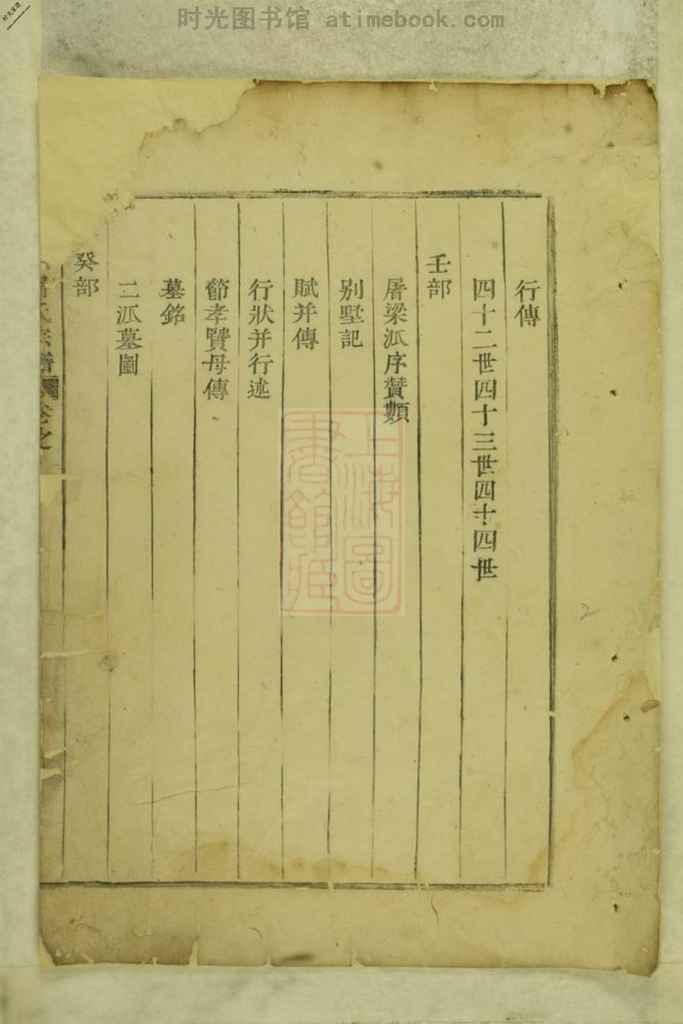 时光图书馆 atimebook.com
行傳
四十二世四十三世四十四世
壬部
屠梁泒序贊類
别墅記
賦并傳
行狀并行述
節孝賢母傳
墓銘
二泒墓圖
癸部
氏宗譜
卷之
上海圖書館藏